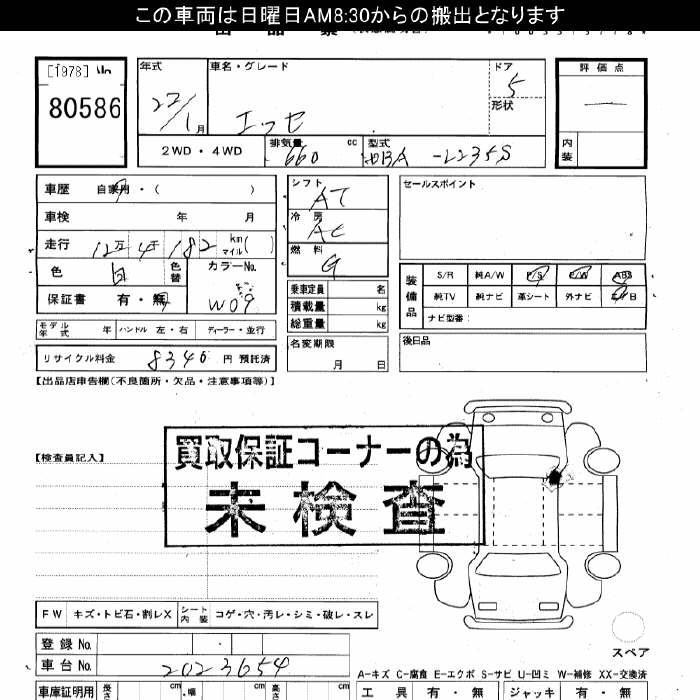 この車両は日曜日AM8:30からの搬出となります
80586
年式
22/1 月
車名・グレード
エッセ
ドア
5
形状
評価点
内装
2WD・4WD
排気量
660 cc
型式
L235S
車歴 自家用・( )
車検 年 月
走行 12万 4千 182 km マイル( )
色 白 色替
カラーNo.
W09
保証書 有・無
モデル年式 年 ハンドル 左・右 ディーラー・並行
リサイクル料金 8340 円 預託済
シフト
AT
冷房
AC
燃料
G
乗車定員 名
積載量 kg
総重量 kg
名変期限
月 日
セールスポイント
装備品
S/R 純A/W P/S P/W ABS
純TV 純ナビ 革シート 外ナビ エアB
ナビ型番:
後日品
【出品店申告欄(不良箇所・欠品・注意事項等)】
【検査員記入】
買取保証コーナーの為
未検査
FW キズ・トビ石・割レX シート内装 コゲ・穴・汚レ・シミ・破レ・スレ
登録 No.
車台 No. 2023654
スペア
A-キズ C-腐食 E-エクボ S-サビ U-凹ミ W-補修 XX-交換済
車庫証明用 長さ cm 幅 cm 高さ cm
工具 有・無 ジャッキ 有・無